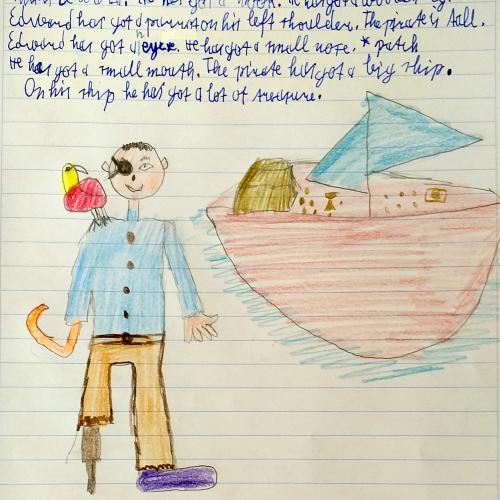 He has got a wooden leg.
Edward has got a parrot on his left shoulder. The pirate is tall.
Edward has got a eye. He has got a small nose. * patch
He has got a small mouth. The pirate has got a big ship.
On his ship he has got a lot of treasure.